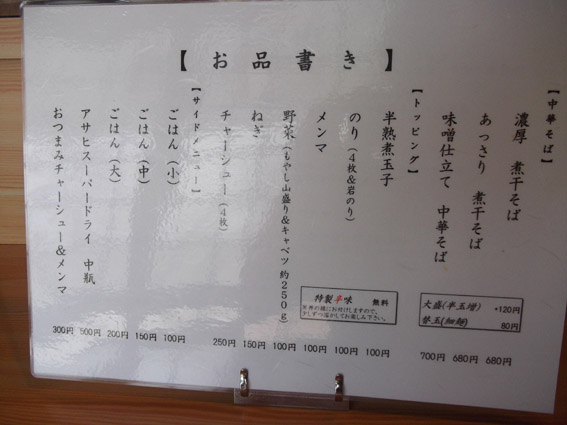 【お品書き】
【中華そば】
濃厚 煮干そば 680円
あっさり 煮干そば 680円
味噌仕立て 中華そば 700円
大盛(半玉増) +120円
替玉(細麺) 80円
【トッピング】
半熟煮玉子 100円
のり(4枚&岩のり) 100円
メンマ 100円
野菜(もやし山盛り&キャベツ 約250g) 100円
ねぎ 150円
チャーシュー(4枚) 250円
特製辛味 無料
少しずつ溶かしてお楽しみ下さい。
【サイドメニュー】
ごはん(小) 100円
ごはん(中) 150円
ごはん(大) 200円
アサヒスーパードライ 中瓶 500円
おつまみチャーシュー&メンマ 300円